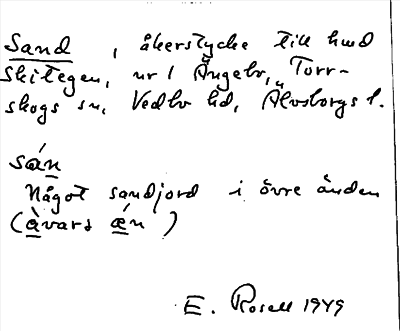 Sand, åkerstycke till hmd
Skitegen, nr 1 Ängebo, Torr-
skogs sn, Vedbo hd, Älvsborgs l.
sán
Något sandjord i övre änden
(àvars æn)
E. Rosell 1949